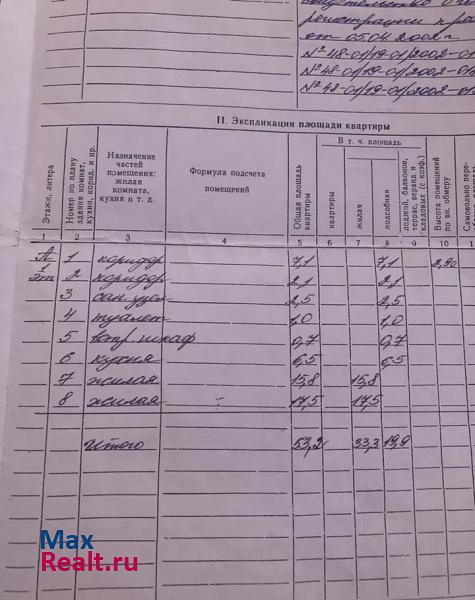 регистрации пра
от 05.04.2002 г
№ 48-01/19-01/2002-01
№ 48-01/19-01/2002-016
№ 48-01/19-01/2002-01
II. Экспликация площади квартиры
Этажи, литера
Номер по плану здания комнат, кухни, корид. и пр.
Назначение частей помещения: жилая комната, кухня и т. д.
Формула подсчета помещений
Общая площадь квартиры
В т. ч. площадь
квартиры
жилая
подсобная
лоджий, балконов, террас, веранд и кладовых (с коэф.)
Высота помещений по вн. обмеру
Самовольно пере-
1 2 3 4 5 6 7 8 9 10 1
А 1 коридор 7,1 7,1 2,90
1 эт 2 коридор 2,1 2,1
3 сан. узел 2,5 2,5
4 туалет 1,0 1,0
5 встр. шкаф 0,7 0,7
6 кухня 6,5 6,5
7 жилая 15,8 15,8
8 жилая 17,5 17,5
Итого 53,2 33,3 19,9
Max
Realt.ru